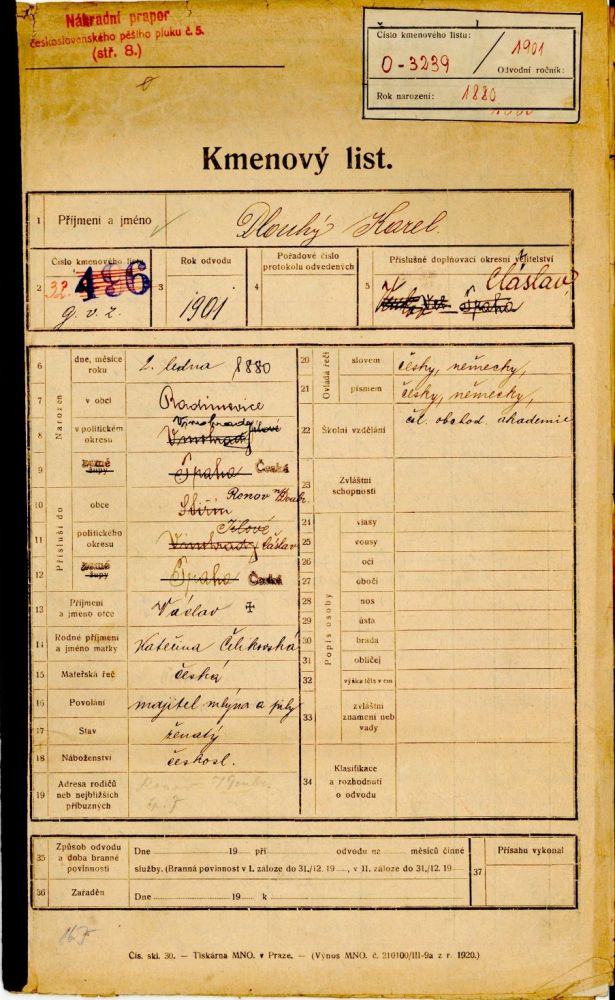 Náhradní prapor
československého pěšího pluku č. 5.
(stř. 8.)
Číslo kmenového listu:
O-3239 / 1901
Odvodní ročník:
Rok narození: 1880
Kmenový list.
1 Příjmení a jméno Dlouhý Karel.
2 Číslo kmenového listu 32 486 g. v. z.
3 Rok odvodu 1901
4 Pořadové číslo protokolu odvedených
5 Příslušné doplňovací okresní velitelství Čáslav Praha
Narozen
6 dne, měsíce roku 2. ledna 1880
7 v obci Radimovice
8 v politickém okresu Vinohrady Jílové
9 země župy Praha Česká
Přísluší do
10 obce Ronov n/Doubr.
11 politického okresu Jílové Vinohrady Čáslav
12 země župy Praha Česká
13 Příjmení a jméno otce Václav ✠
14 Rodné příjmení a jméno matky Kateřina Čelikovská
15 Mateřská řeč česká
16 Povolání majitel mlýna a pily
17 Stav ženatý
18 Náboženství českosl.
19 Adresa rodičů neb nejbližších příbuzných
Ovládá řeči
20 slovem česky, německy,
21 písmem česky, německy,
22 Školní vzdělání čsl. obchod. akademie
23 Zvláštní schopnosti
Popis osoby
24 vlasy
25 vousy
26 oči
27 obočí
28 nos
29 ústa
30 brada
31 obličej
32 výška těla v cm
33 zvláštní znamení neb vady
34 Klasifikace a rozhodnutí o odvodu
35 Způsob odvodu a doba branné povinnosti
Dne 19 při odvodu na měsíců činné
služby. (Branná povinnost v I. záloze do 31./12. 19, v II. záloze do 31./12. 19
36 Zařaděn Dne 19 k
37 Přísahu vykonal
Čís. skl. 30. — Tiskárna MNO. v Praze. — (Výnos MNO. č. 210100/III-9a z r. 1920.)